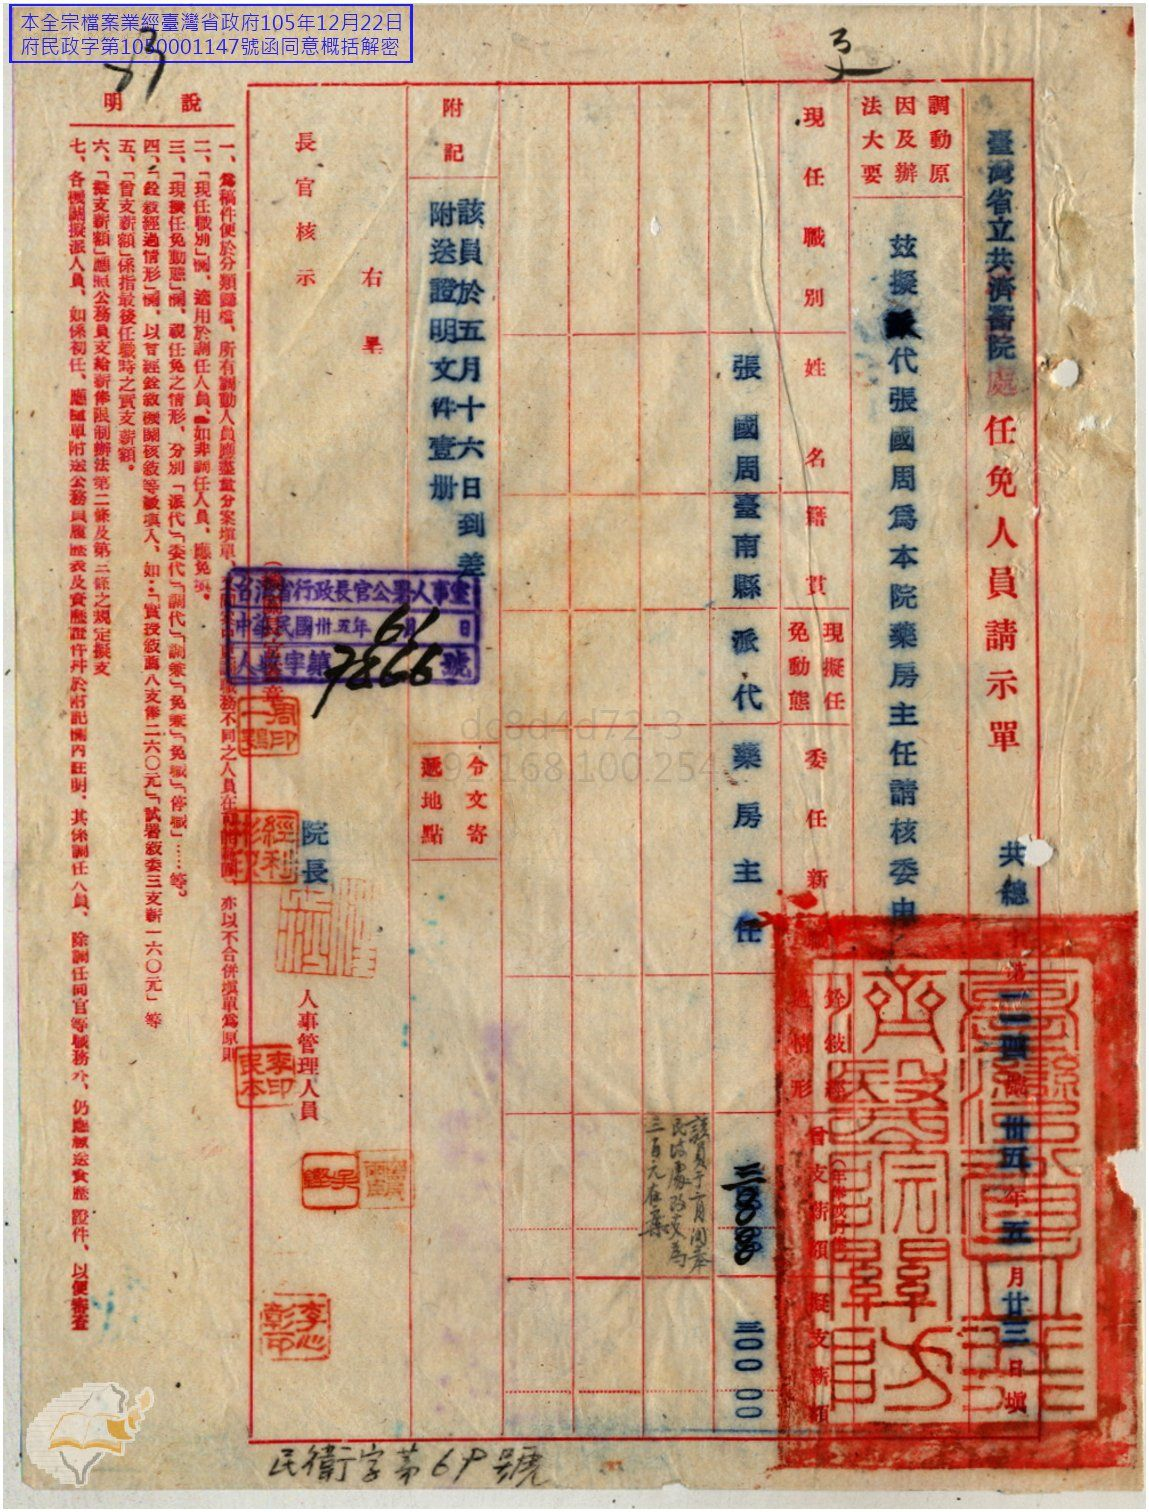 本全宗檔案業經臺灣省政府105年12月22日
府民政字第1050001147號函同意概括解密
臺灣省立共濟醫院處任免人員請示單
共總字第二四號卅五年五月廿三日填
調動原因及辦法大要
茲擬派代張國周為本院藥房主任請核委由
現任職別
姓名
籍貫
現擬任免動態
委任新職
銓敍經過情形
曾支薪額
擬支薪額
張國周
臺南縣
派代
藥房主任
三00 00
附記
該員於五月十六日到差
附送證明文件壹册
令文寄遞地點
右單
長官核示
台灣省行政長官公署人事室
中華民國卅五年6月1日
人事字第7266號
院長
人事管理人員
說明
一、為稿件便於分類歸檔、所有調動人員應盡量分案填單、
職務不同之人員在同一
亦以不合併填單為原則
二、「現任職別」欄、適用於調任人員、如非調任人員、應免填。
三、「現擬任免動態」欄、視任免之情形、分別「派代」「委代」「調代」「調兼」「免兼」「免職」「停職」……等。
四、「銓敍經過情形」欄、以曾經銓敍機關核敍等級填入、如：「實授敍薦八支俸二六〇元」「試署敍委三支薪一六〇元」等
五、「曾支薪額」係指最後任職時之實支薪額。
六、「擬支薪額」應照公務員支給薪俸限制辦法第二條及第三條之規定擬支
七、各機關擬派人員、如係初任、應隨單附送公務員履歷表及資歷證件幷於附記欄內註明、其係調任人員、除調任同官等職務外、仍應檢送資歷證件、以便審查
民衛字第69號
dc8d4d72-3
192.168.100.254